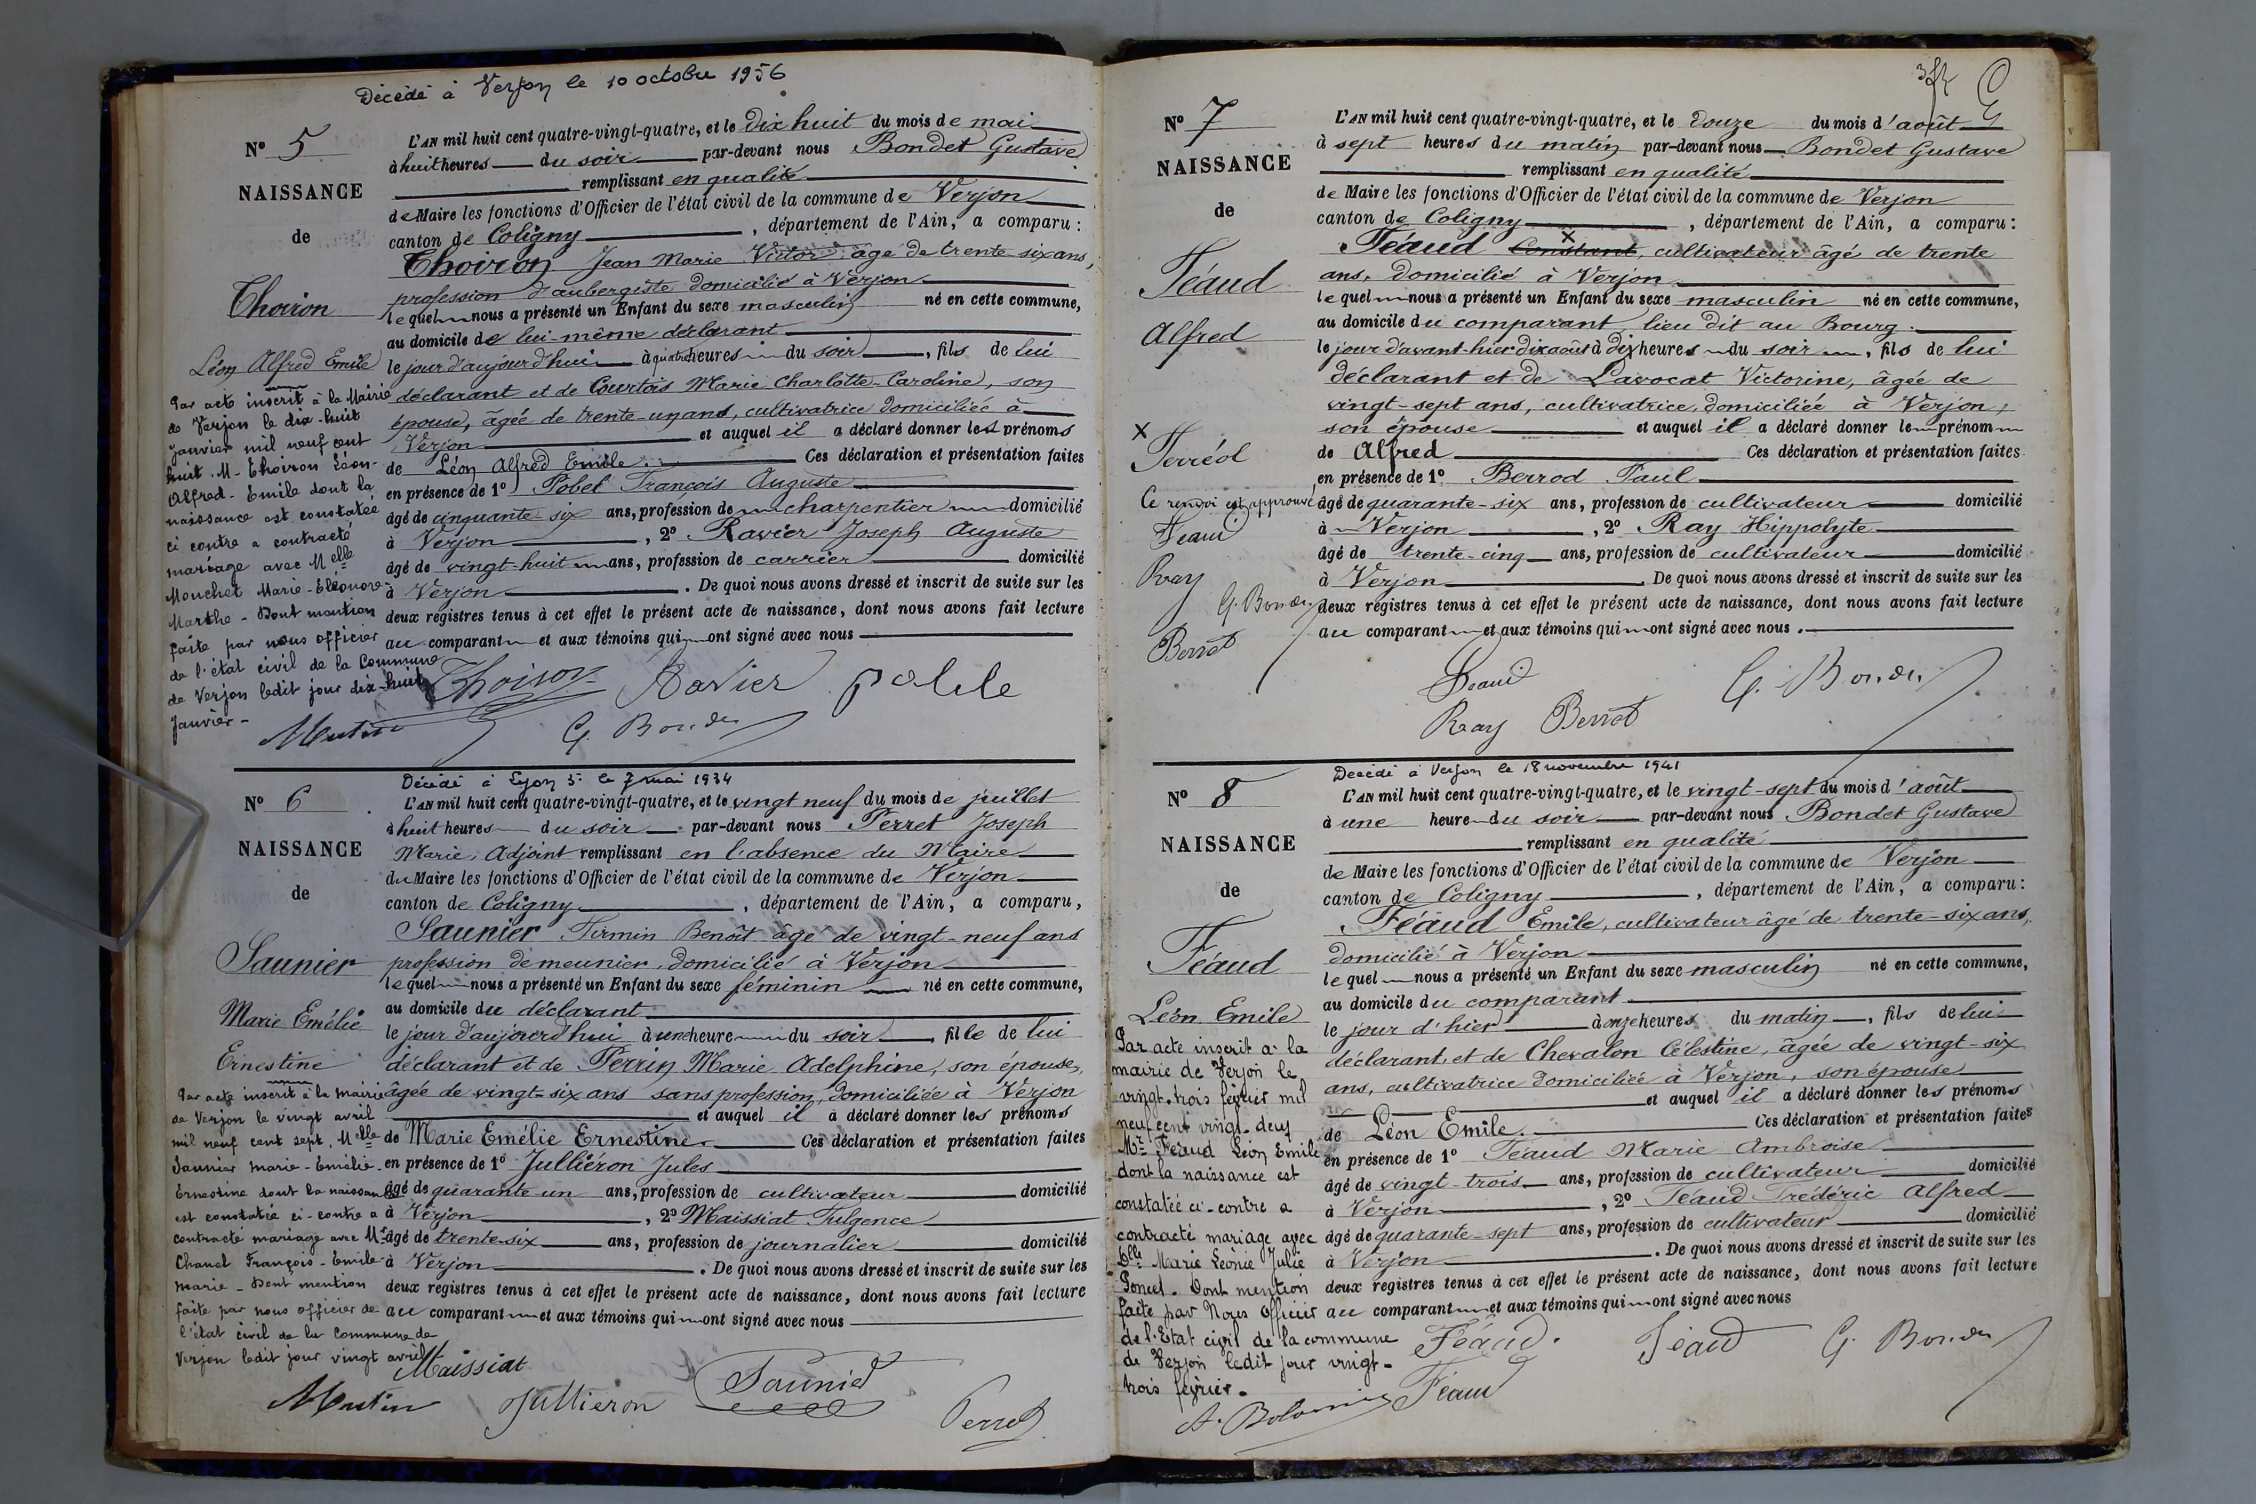 Décédé à Verjon le 10 octobre 1956
N° 5
NAISSANCE
de
Thoiron
Léon Alfred Emile
Par acte inscrit à la Mairie
de Verjon le dix-huit
janvier mil neuf cent
huit. M. Thoiron Léon-
Alfred-Emile dont la
naissance est constatée
ci contre a contracté
mariage avec Melle
Mouchet Marie-Eléonore
Marthe - Dont mention
faite par nous officier
de l'état civil de la Commune
de Verjon ledit jour dix-huit
Janvier -
L'AN mil huit cent quatre-vingt-quatre, et le dix huit du mois de mai
à huit heures du soir par-devant nous Bondet Gustave
remplissant en qualité
de Maire les fonctions d'Officier de l'état civil de la commune de Verjon
canton de Coligny, département de l'Ain, a comparu :
Thoiron Jean Marie Victor âgé de trente-six ans,
profession d'aubergiste domicilié à Verjon
lequel nous a présenté un Enfant du sexe masculin né en cette commune,
au domicile de lui-même déclarant
le jour d'aujourd'hui à quatre heures du soir, fils de lui
déclarant et de Courtois Marie Charlotte-Caroline, son
épouse, âgée de trente-un ans, cultivatrice domiciliée à
Verjon et auquel il a déclaré donner les prénoms
de Léon Alfred Emile. Ces déclaration et présentation faites
en présence de 1° Pobel François Auguste
âgé de cinquante-six ans, profession de charpentier domicilié
à Verjon, 2° Ravier Joseph Auguste
âgé de vingt-huit ans, profession de carrier domicilié
à Verjon. De quoi nous avons dressé et inscrit de suite sur les
deux registres tenus à cet effet le présent acte de naissance, dont nous avons fait lecture
au comparant et aux témoins qui ont signé avec nous
Thoiron Ravier
G. Bondet
Décédé à Lyon 5e le 7 mai 1934
N° 6
NAISSANCE
de
Saunier
Marie Emélie
Ernestine
Par acte inscrit à la mairie
de Verjon le vingt avril
mil neuf cent sept. Melle
Saunier Marie-Emélie-
Ernestine dont la naissance
est constatée ci-contre a
contracté mariage avec Mr
Chanel François-Emile
Marie - Dont mention
faite par nous officier de
l'état civil de la Commune de
Verjon ledit jour vingt avril
L'AN mil huit cent quatre-vingt-quatre, et le vingt neuf du mois de juillet
à huit heures du soir par-devant nous Perret Joseph
Marie, Adjoint remplissant en l'absence du Maire
du Maire les fonctions d'Officier de l'état civil de la commune de Verjon
canton de Coligny, département de l'Ain, a comparu,
Saunier Firmin Benoît âgé de vingt-neuf ans
profession de meunier, domicilié à Verjon
lequel nous a présenté un Enfant du sexe féminin né en cette commune,
au domicile du déclarant
le jour d'aujourd'hui à une heure du soir, fille de lui
déclarant et de Perrin Marie Adelphine, son épouse,
âgée de vingt-six ans sans profession, domiciliée à Verjon
et auquel il a déclaré donner les prénoms
de Marie Emélie Ernestine. Ces déclaration et présentation faites
en présence de 1° Julliéron Jules
âgé de quarante un ans, profession de cultivateur domicilié
à Verjon, 2° Maissiat Fulgence
âgé de trente-six ans, profession de journalier domicilié
à Verjon. De quoi nous avons dressé et inscrit de suite sur les
deux registres tenus à cet effet le présent acte de naissance, dont nous avons fait lecture
au comparant et aux témoins qui ont signé avec nous
Maissiat
Jullieron Saunier Perret
N° 7
NAISSANCE
de
Féaud
Alfred
x
Ferréol
Ce renvoi est approuvé
Feaud
Ray
G. Bondet
Berrod
L'AN mil huit cent quatre-vingt-quatre, et le douze du mois d'août
à sept heures du matin par-devant nous Bondet Gustave
remplissant en qualité
de Maire les fonctions d'Officier de l'état civil de la commune de Verjon
canton de Coligny, département de l'Ain, a comparu :
Féaud Constant x, cultivateur âgé de trente
ans, domicilié à Verjon
lequel nous a présenté un Enfant du sexe masculin né en cette commune,
au domicile du comparant, lieu dit au Bourg.
le jour d'avant-hier dix août à dix heures du soir, fils de lui
déclarant et de Lavocat Victorine, âgée de
vingt-sept ans, cultivatrice, domiciliée à Verjon,
son épouse et auquel il a déclaré donner le prénom
de Alfred Ces déclaration et présentation faites
en présence de 1° Berrod Paul
âgé de quarante-six ans, profession de cultivateur domicilié
à Verjon, 2° Ray Hippolyte
âgé de trente-cinq ans, profession de cultivateur domicilié
à Verjon De quoi nous avons dressé et inscrit de suite sur les
deux registres tenus à cet effet le présent acte de naissance, dont nous avons fait lecture
au comparant et aux témoins qui ont signé avec nous.
Feaud G. Bondet
Ray Berrod
Décédé à Verjon le 18 novembre 1941
N° 8
NAISSANCE
de
Féaud
Léon Emile
Par acte inscrit à la
mairie de Verjon le
vingt-trois février mil
neuf cent vingt-deux
Mr Féaud Léon Emile
dont la naissance est
constatée ci-contre a
contracté mariage avec
Elle Marie Léonie Julie
Poncet. Dont mention
faite par Nous Officier
de l'Etat civil de la commune
de Verjon ledit jour vingt-
trois février.
L'AN mil huit cent quatre-vingt-quatre, et le vingt-sept du mois d'août
à une heure du soir par-devant nous Bondet Gustave
remplissant en qualité
de Maire les fonctions d'Officier de l'état civil de la commune de Verjon
canton de Coligny, département de l'Ain, a comparu :
Féaud Emile, cultivateur âgé de trente-six ans,
domicilié à Verjon
lequel nous a présenté un Enfant du sexe masculin né en cette commune,
au domicile du comparant
le jour d'hier à onze heures du matin, fils de lui
déclarant, et de Chevalon Célestine, âgée de vingt-six
ans, cultivatrice domiciliée à Verjon, son épouse
et auquel il a déclaré donner les prénoms
de Léon Emile. Ces déclaration et présentation faites
en présence de 1° Féaud Marie Ambroise
âgé de vingt-trois ans, profession de cultivateur domicilié
à Verjon, 2° Féaud Frédéric Alfred
âgé de quarante-sept ans, profession de cultivateur domicilié
à Verjon. De quoi nous avons dressé et inscrit de suite sur les
deux registres tenus à cet effet le présent acte de naissance, dont nous avons fait lecture
au comparant et aux témoins qui ont signé avec nous
Féaud. Féaud G. Bondet
Féaud